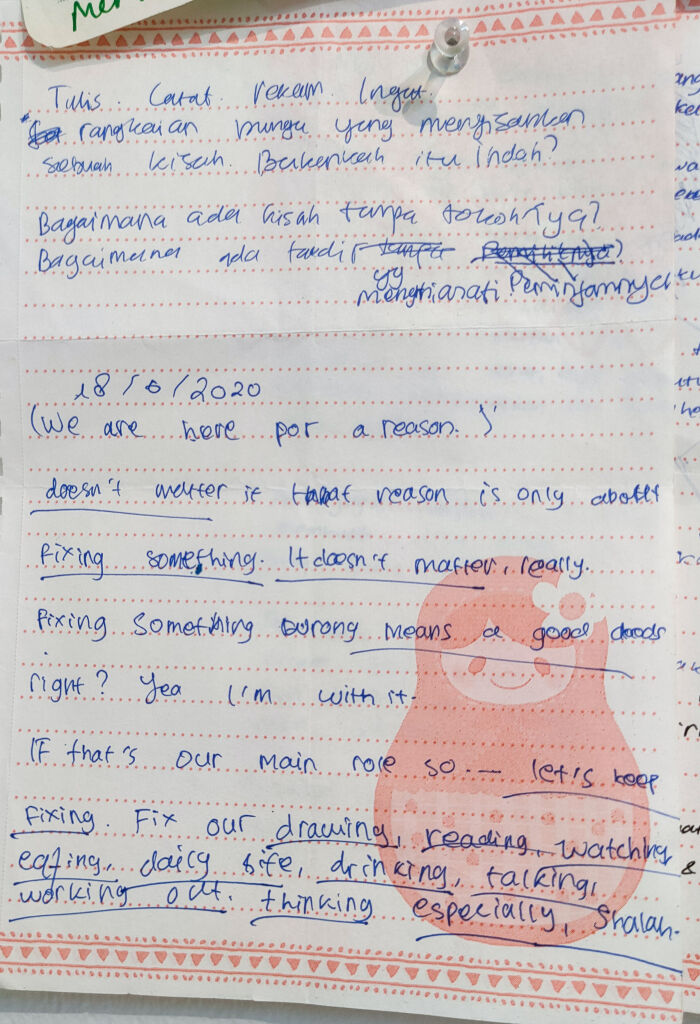 Tulis. Catat. rekam Ingat.
rangkaian bunga yang mengisahkan
sebuah kisah. Bukankah itu indah?
Bagaimana ada kisah tanpa tokohnya?
Bagaimana ada takdir tanpa Pemiliknya?
yg
menghianati Peminjamnya
18/6/2020
(We are here for a reason.)
doesn't matter if that reason is only about
fixing something. It doesn't matter, really.
fixing something wrong means a good deeds
right? Yea I'm with it.
IF that's our main role so.— let's keep
Fixing. Fix our drawing, reading, watching
eating, daily life, drinking, talking,
working out. thinking especially, Shalah.